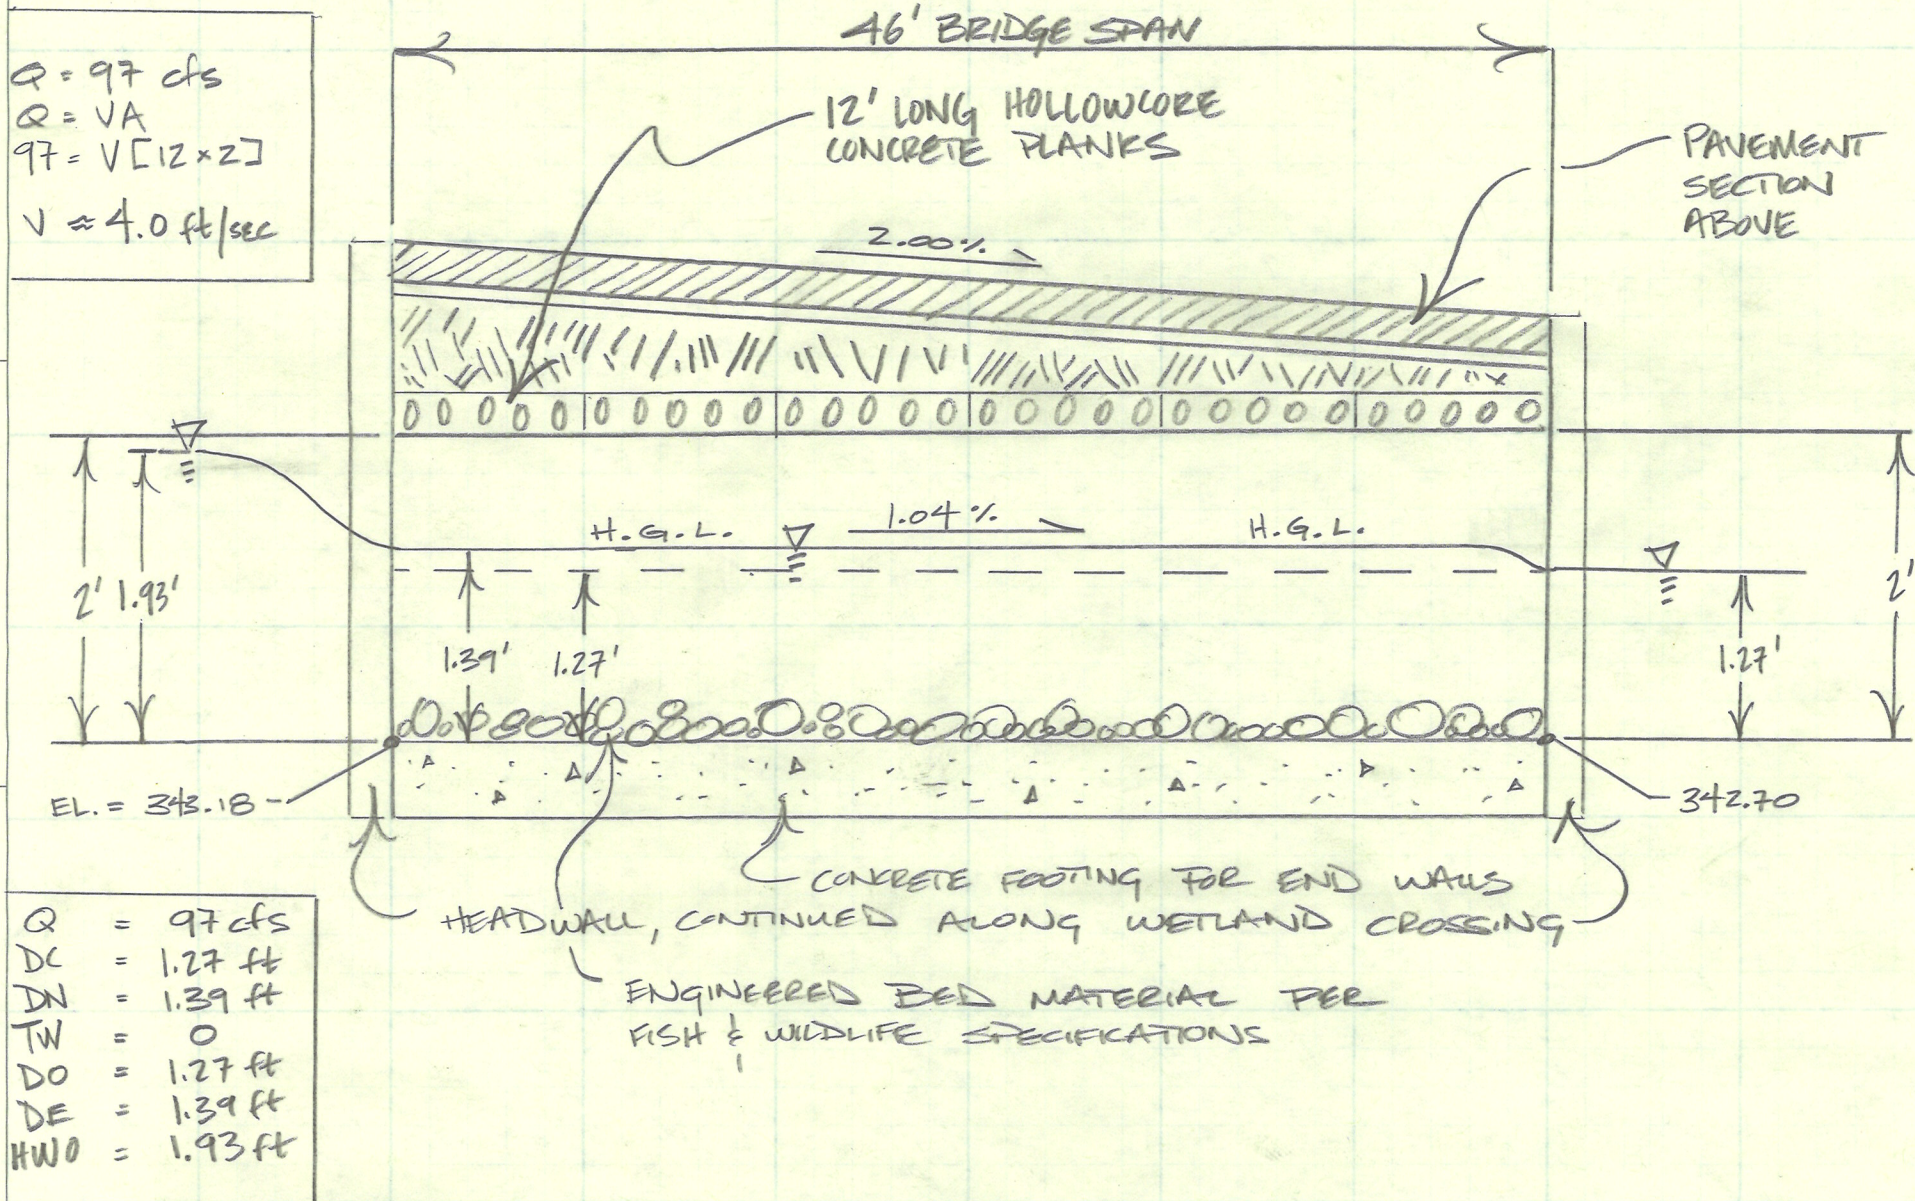 46' BRIDGE SPAN
Q = 97 cfs
Q = VA
97 = V[12 × 2]
V ≈ 4.0 ft/sec
12' LONG HOLLOWCORE
CONCRETE PLANKS
PAVEMENT
SECTION
ABOVE
2.00%
1.04%
H.G.L.
H.G.L.
2'
1.93'
1.39'
1.27'
1.27'
2'
EL. = 343.18
342.70
CONCRETE FOOTING FOR END WALLS
HEADWALL, CONTINUED ALONG WETLAND CROSSING
ENGINEERED BED MATERIAL PER
FISH & WILDLIFE SPECIFICATIONS
Q = 97 cfs
DC = 1.27 ft
DN = 1.39 ft
TW = 0
DO = 1.27 ft
DE = 1.39 ft
HWO = 1.93 ft